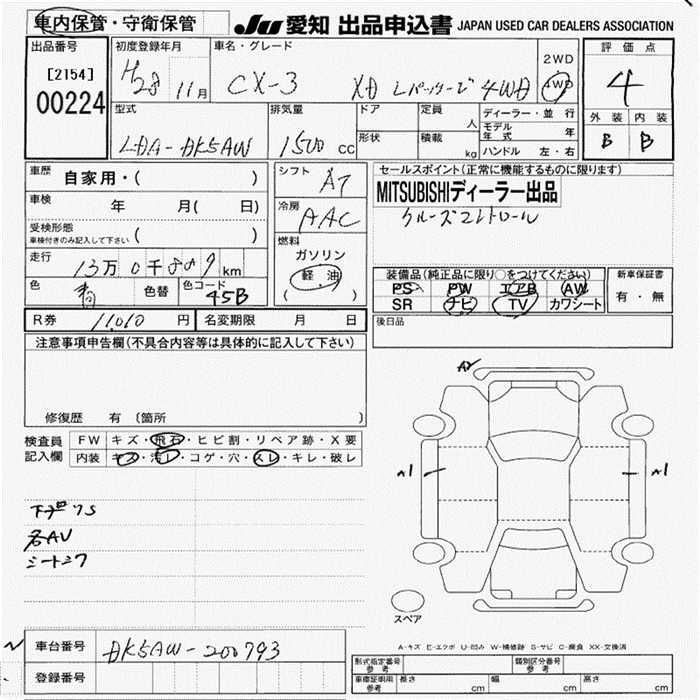 車内保管・守衛保管
JU 愛知 出品申込書 JAPAN USED CAR DEALERS ASSOCIATION
出品番号
[2154]
00224
初度登録年月
H28 11月
車名・グレード
CX-3 XD Lパッケージ 4WD
2WD
4WD
評価点
4
外装 内装
B B
型式
LDA-DK5AW
排気量
1500 cc
ドア
形状
定員
人
積載
kg
ディーラー・並行
モデル年式 年
ハンドル 左・右
車歴
自家用・( )
車検
年 月( 日)
受検形態
車検付きのみ記入して下さい ( )
走行
13万0千889km
色
青
色替
色コード
45B
シフト
AT
冷房
AAC
燃料
ガソリン
軽・油
( )
セールスポイント(正常に機能するものに限ります)
MITSUBISHIディーラー出品
クルーズコントロール
装備品(純正品に限り○をつけてください)
PS PW エアB AW
SR ナビ TV カワシート
新車保証書
有・無
後日品
R券 11,010 円 名変期限 月 日
注意事項申告欄(不具合内容等は具体的に記入して下さい)
修復歴 有 (箇所 )
検査員記入欄
FW キズ・飛石・ヒビ割・リペア跡・X要
内装 キズ・汚レ・コゲ・穴・スレ・キレ・破レ
各AU
A2
A1
A1
スペア
A-キズ E-エクボ U-凹み W-補修跡 S-サビ C-腐食 XX-交換済
車台番号 DK5AW-200793
登録番号
型式指定番号 参考
類別区分番号 参考
車庫証明用 参考 長さ cm 幅 cm 高さ cm